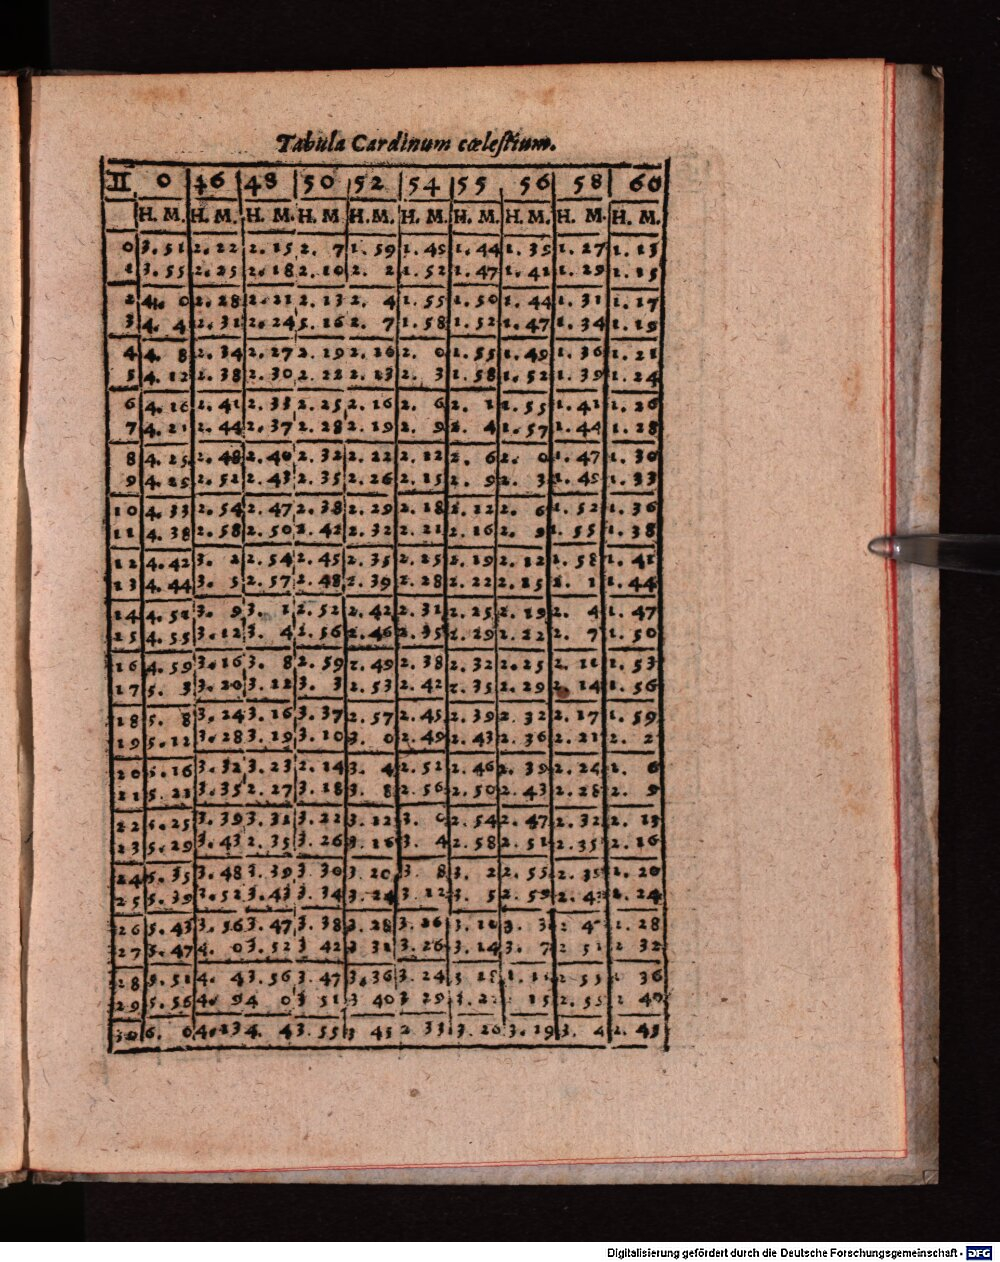 Tabula Cardinum cœlestium.
II 0 46 48 50 52 54 55 56 58 60
H. M. H. M. H. M. H. M H. M. H. M. H. M. H. M. H. M. H. M.
0 3. 51 2. 22 2. 15 2. 7 1. 59 1. 45 1. 44 1. 35 1. 27 1. 13
1 3. 55 2. 25 2. 18 2. 10 2. 2 1. 52 1. 47 1. 41 1. 29 1. 15
2 4. 0 2. 28 2. 21 2. 13 2. 4 1. 55 1. 50 1. 44 1. 31 1. 17
3 4. 4 2. 31 2. 24 5. 16 2. 7 1. 58 1. 52 1. 47 1. 34 1. 19
4 4. 8 2. 34 2. 27 2. 19 2. 16 2. 0 1. 55 1. 49 1. 36 1. 21
5 4. 12 2. 38 2. 30 2. 22 2. 13 2. 3 1. 58 1. 52 1. 39 1. 24
6 4. 16 2. 41 2. 33 2. 25 2. 16 2. 6 2. 1 1. 55 1. 41 1. 26
7 4. 21 2. 44 2. 37 2. 28 2. 19 2. 9 2. 4 1. 57 1. 44 1. 28
8 4. 25 2. 48 2. 40 2. 32 2. 22 2. 12 2. 6 2. 0 1. 47 1. 30
9 4. 25 2. 52 2. 43 2. 35 2. 26 2. 15 2. 9 2. 3 1. 49 1. 33
10 4. 33 2. 54 2. 47 2. 38 2. 29 2. 18 2. 12 2. 6 1. 52 1. 36
11 4. 38 2. 58 2. 50 2. 42 2. 32 2. 21 2. 16 2. 9 1. 55 1. 38
12 4. 42 3. 2 2. 54 2. 45 2. 35 2. 25 2. 19 2. 12 1. 58 1. 41
13 4. 44 3. 5 2. 57 2. 48 2. 39 2. 28 2. 22 2. 15 2. 1 1. 44
14 4. 51 3. 9 3. 1 2. 52 2. 42 2. 31 2. 25 2. 19 2. 4 1. 47
15 4. 55 3. 12 3. 4 2. 56 2. 46 2. 35 2. 29 2. 22 2. 7 1. 50
16 4. 59 3. 16 3. 8 2. 59 2. 49 2. 38 2. 32 2. 25 2. 11 1. 53
17 5. 3 3. 20 3. 12 3. 3 2. 53 2. 42 2. 35 2. 29 2. 14 1. 56
18 5. 8 3. 24 3. 16 3. 37 2. 57 2. 45 2. 39 2. 32 2. 17 1. 59
19 5. 12 3. 28 3. 19 3. 10 3. 0 2. 49 2. 43 2. 36 2. 21 2. 2
20 5. 16 3. 32 3. 23 2. 14 3. 4 2. 52 2. 46 2. 39 2. 24 2. 6
21 5. 21 3. 35 2. 27 3. 18 3. 8 2. 56 2. 50 2. 43 2. 28 2. 9
22 5. 25 3. 39 3. 31 3. 22 3. 12 3. 0 2. 54 2. 47 2. 32 2. 13
23 5. 29 3. 43 2. 35 3. 26 3. 16 3. 4 2. 58 2. 51 2. 35 2. 16
24 5. 35 3. 48 3. 39 3. 30 3. 20 3. 8 3. 2 2. 55 2. 39 2. 20
25 5. 39 3. 52 3. 43 3. 34 3. 24 3. 12 3. 5 2. 59 2. 43 2. 24
26 5. 43 3. 56 3. 47 3. 38 3. 28 3. 16 3. 10 3. 3 2 47 2. 28
27 3. 47 4. 0 3. 52 3 42 3 31 3. 26 3. 14 3. 7 2 51 2 32
28 5. 51 4. 4 3. 56 3. 47 3. 36 3. 24 3 18 2. 55 2 36
29 5. 56 4. 9 4 0 3 51 3 40 3 29 15 2. 55 2 40
30 6. 0 4. 13 4. 4 3. 55 3 45 2 33 3. 26 3. 19 3. 4 2. 45
Digitalisierung gefördert durch die Deutsche Forschungsgemeinschaft - DFG